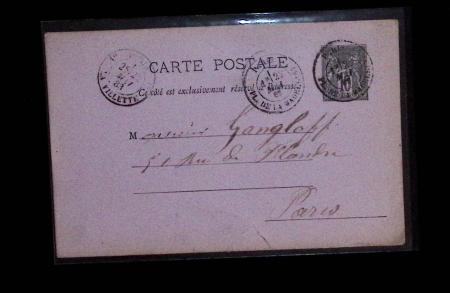 CARTE POSTALE
Ce côté est exclusivement réservé à l'adresse
VILLETTE
PL. DE LA MADELEINE
M onsieur Gangloff
51 Rue de Flandre
Paris